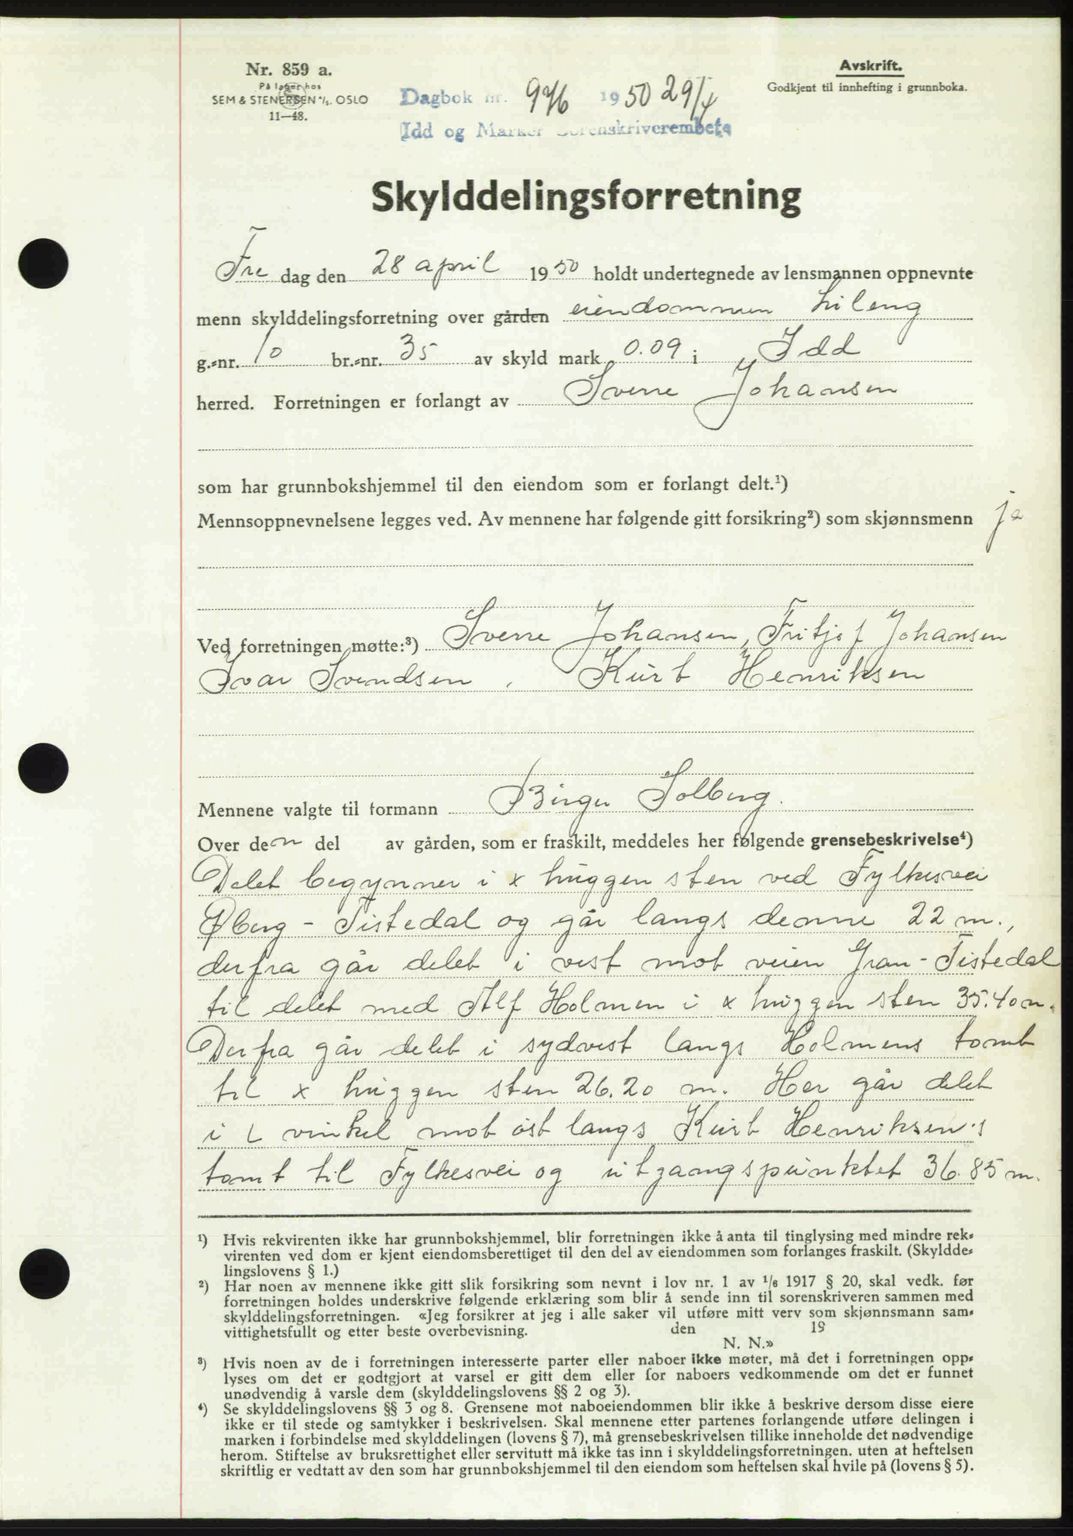 Nr. 859 a.
På lager hos
SEM & STENERSEN A/S. OSLO
11—48.
Dagbok nr. 976 1950 29/4
Idd og Marker Sorenskriverembete
Avskrift.
Godkjent til innhefting i grunnboka.
Skylddelingsforretning
Fre dag den 28 april 1950 holdt undertegnede av lensmannen oppnevnte
menn skylddelingsforretning over gården eiendommen Lileng
g.-nr. 10 br.-nr. 35 av skyld mark 0.09 i Idd
herred. Forretningen er forlangt av Sverre Johansen
som har grunnbokshjemmel til den eiendom som er forlangt delt.¹)
Mennsoppnevnelsene legges ved. Av mennene har følgende gitt forsikring²) som skjønnsmenn ja
Ved forretningen møtte:³) Sverre Johansen, Fritjof Johansen
Ivar Svendsen, Kurt Henriksen
Mennene valgte til formann Birger Solberg.
Over den del av gården, som er fraskilt, meddeles her følgende grensebeskrivelse⁴)
Delet begynner i x huggen sten ved Fylkesvei
Øberg - Tistedal og går langs denne 22 m.,
derfra går delet i vest mot veien Gran - Tistedal
til delet med Alf Holmen i x huggen sten 35.40 m.
Derfra går delet i sydvest langs Holmens tomt
til x huggen sten 26.20 m. Her går delet
i L vinkel mot øst langs Kurt Henriksen's
tomt til Fylkesvei og utgangspunktet 36.85 m.
¹) Hvis rekvirenten ikke har grunnbokshjemmel, blir forretningen ikke å anta til tinglysing med mindre rek-
virenten ved dom er kjent eiendomsberettiget til den del av eiendommen som forlanges fraskilt. (Skyldde-
lingslovens § 1.)
²) Har noen av mennene ikke gitt slik forsikring som nevnt i lov nr. 1 av 1/6 1917 § 20, skal vedk. før
forretningen holdes underskrive følgende erklæring som blir å sende inn til sorenskriveren sammen med
skylddelingsforretningen. «Jeg forsikrer at jeg i alle saker vil utføre mitt verv som skjønnsmann sam-
vittighetsfullt og etter beste overbevisning. den 19
N. N.»
³) Hvis noen av de i forretningen interesserte parter eller naboer ikke møter, må det i forretningen opp-
lyses om det er godtgjort at varsel er gitt dem eller for naboers vedkommende om det er funnet
unødvendig å varsle dem (skylddelingslovens §§ 2 og 3).
⁴) Se skylddelingslovens §§ 3 og 8. Grensene mot naboeiendommen blir ikke å beskrive dersom disse eiere
ikke er til stede og samtykker i beskrivelsen. Skal mennene etter partenes forlangende utføre delingen i
marken i forbindelse med skylddelingen (lovens § 7), må grensebeskrivelsen tillike inneholde det nødvendige
herom. Stiftelse av bruksrettighet eller servitutt må ikke tas inn i skylddelingsforretningen. uten at heftelsen
skriftlig er vedtatt av den som har grunnbokshjemmel til den eiendom som heftelsen skal hvile på (lovens § 5).